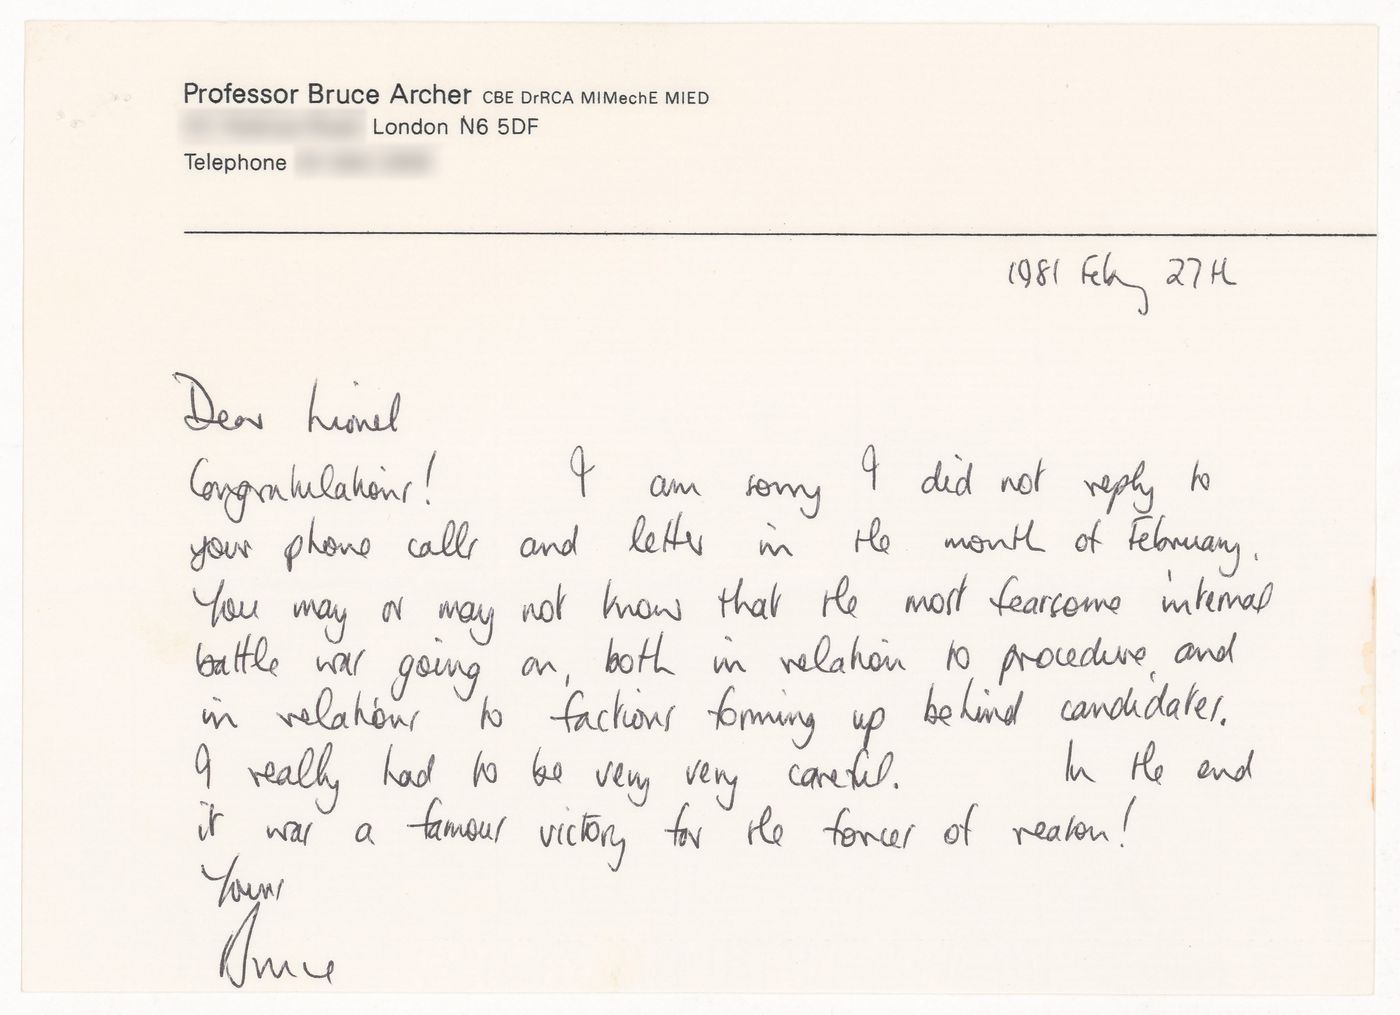 Professor Bruce Archer CBE DrRCA MIMechE MIED
London N6 5DF
Telephone
1981 Feby 27th
Dear Lionel
Congratulations! I am sorry I did not reply to
your phone calls and letter in the month of February.
You may or may not know that the most fearsome internal
battle was going on, both in relation to procedure, and
in relations to factions forming up behind candidates.
I really had to be very very careful. In the end
it was a famous victory for the forces of reason!
Yours
Bruce